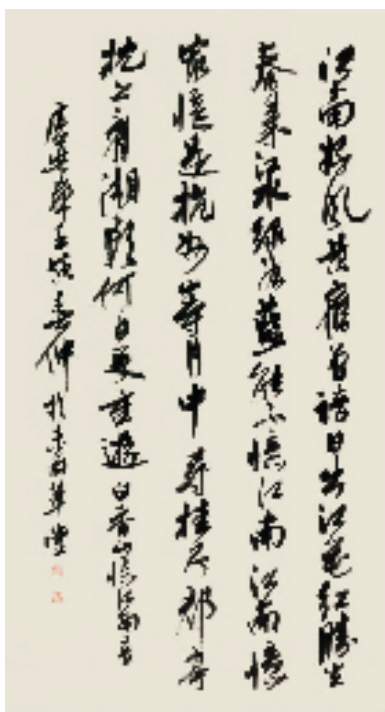 江南好风景舊曾諳日出江花紅勝火
春來江水綠如藍能不憶江南江南憶
最憶是杭州山寺月中尋桂子郡亭
枕上看潮頭何日更重遊白香山憶江南二首
春仲於草堂